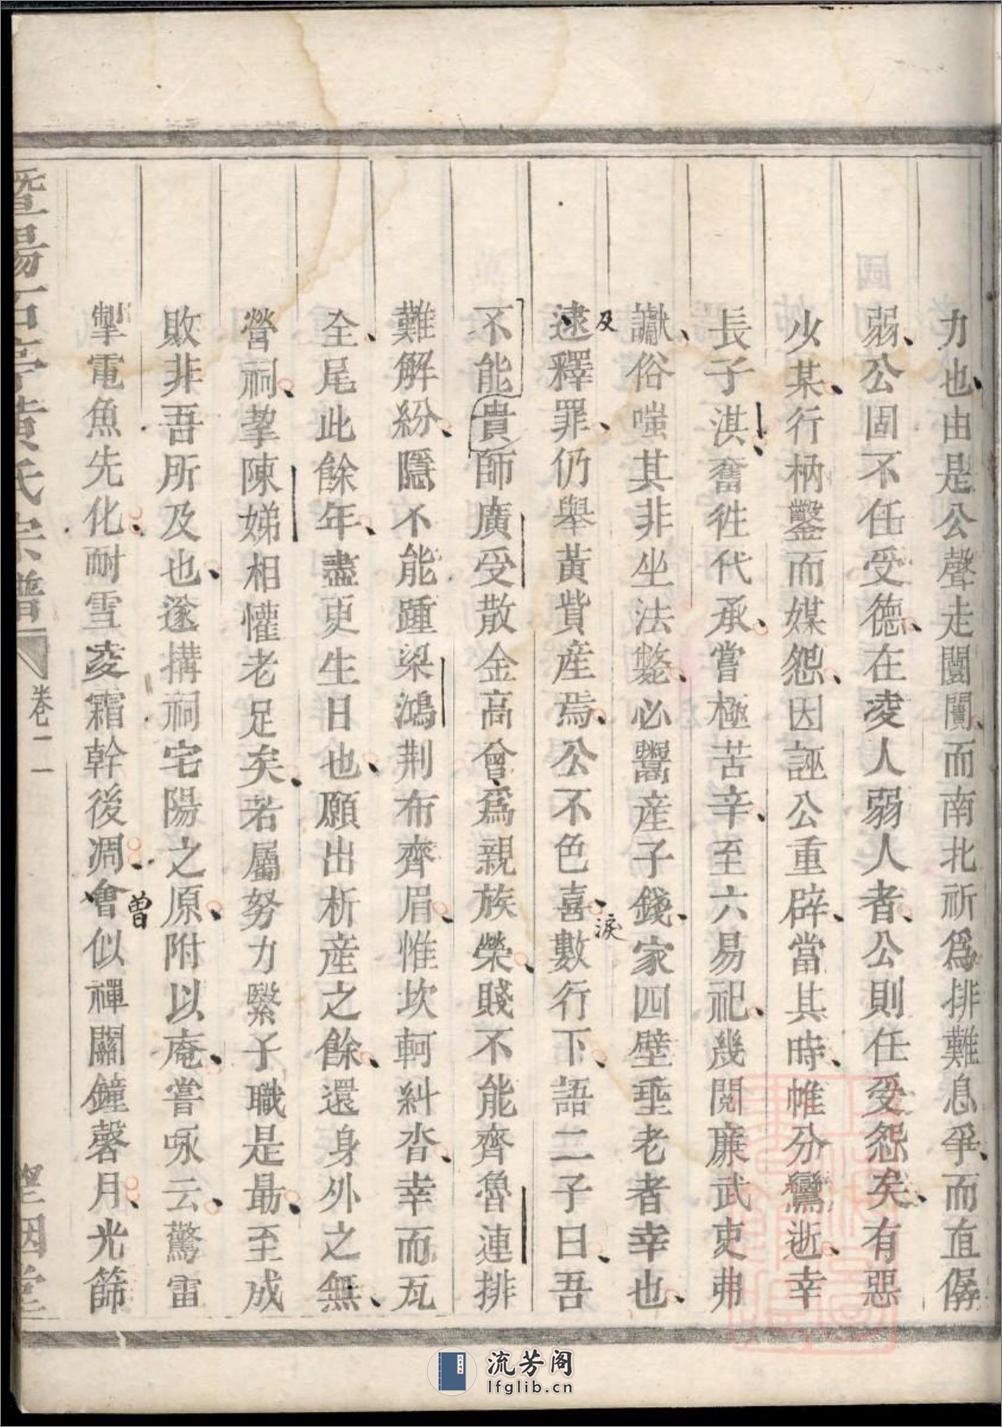 力也由是公聲走闤闠而南北祈為排難息爭而直僝
弱公固不任受德在凌人弱人者公則任受怨矣有惡
少某行柄鑿而媒怨因誣公重辟當其時帷分鸞逝幸
長子淇奮徃代承嘗極苦辛至六易祀幾閱廉武吏弗
讞俗嗤其非坐法斃必鬻產子錢家四壁垂老者幸也
逮釋罪仍舉黃貲產焉公不色喜數行下語二子曰吾
及
淚
不能貴師廣受散金高會為親族榮賤不能齊魯連排
難解紛隱不能踵梁鴻荆布齊眉惟坎軻糾沓幸而瓦
全尾此餘年盡更生日也願出析產之餘還身外之無
營祠挈陳娣相懽老足矣若屬努力緊子職是最至成
敗非吾所及也遂搆祠宅陽之原附以庵嘗咏云驚雷
掣電魚先化耐雪凌霜幹後凋會似禪關鐘磬月光篩
曾
暨陽石亭黃氏宗譜
卷一
一
流芳阁
lfglib.cn